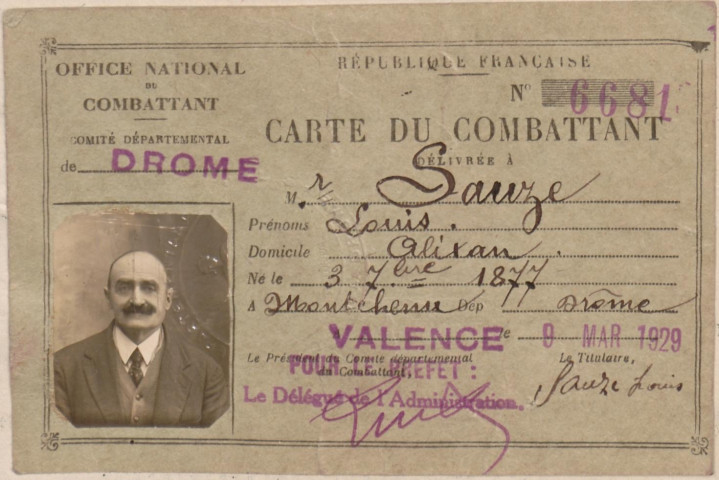 OFFICE NATIONAL
DU
COMBATTANT
COMITÉ DÉPARTEMENTAL
de DROME
RÉPUBLIQUE FRANÇAISE
N° 6681
CARTE DU COMBATTANT
DÉLIVRÉE À
M. r Sauze
Prénoms Louis.
Domicile Alixan.
Né le 3 7bre 1877
A Montchenu Dép Drôme
VALENCE le 9 MAR 1929
Le Président du Comité départemental
du Combattant,
POUR LE PREFET :
Le Délégué de l'Administration.
Le Titulaire,
Sauze Louis